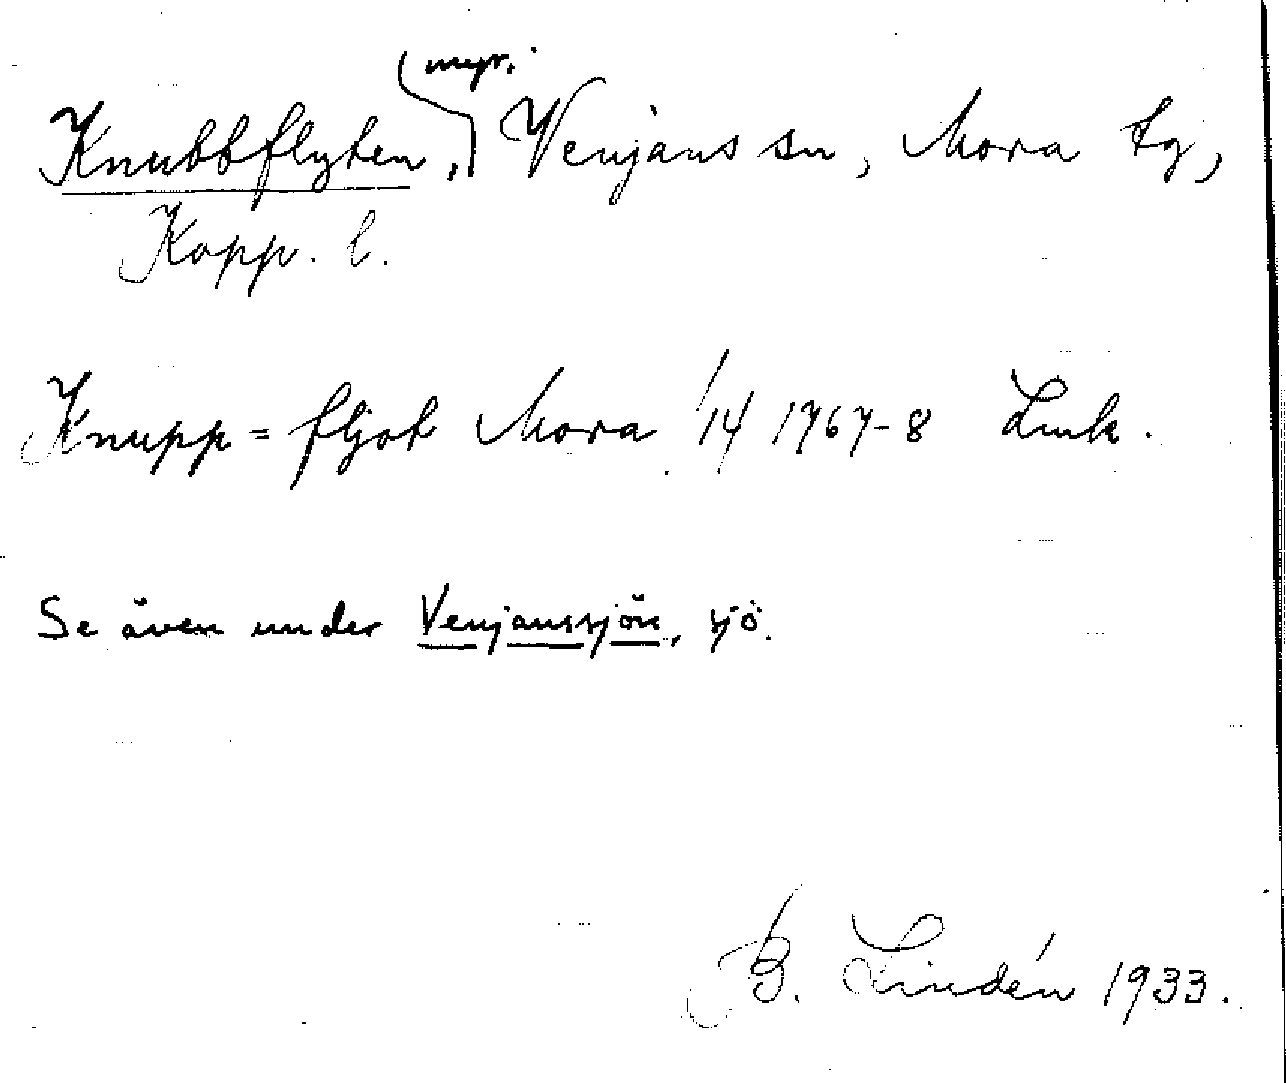 Knubbflyten, myr. Venjans sn, Mora tg,
Kopp. l.
Knupp=fljot Mora 1/14 1767-8 Lmk.
Se även under Venjanssjön, sjö.
B. Lindén 1933.